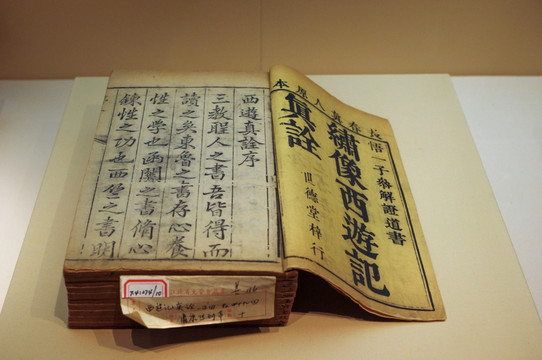 長春真人原本
悟一子叅解證道書
繡像西遊記
真詮
世德堂梓行
西遊真詮序
三教聖人之書吾皆得而
讀之矣東魯之書存心養
性之學也函關之書脩心
鍊性之功也西竺之書明